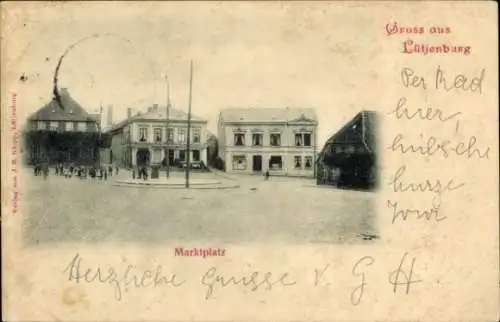 Gruss aus
Lütjenburg
Per Rad
hier,
hübsche
kurze
Tour
Marktplatz
Herzliche Grüsse v. G H
Verlag von J. M.